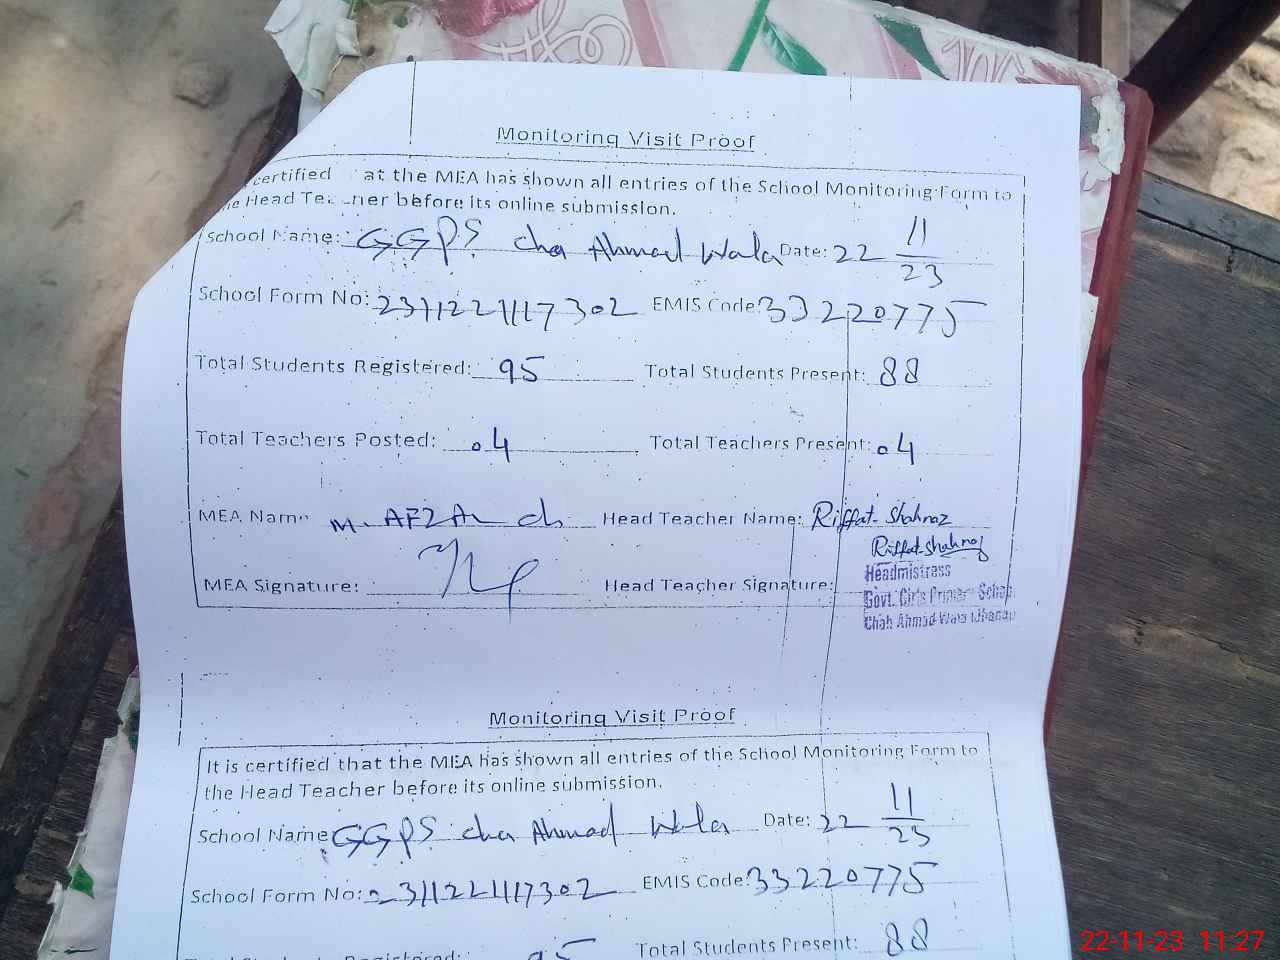 Monitoring Visit Proof
certified at the MEA has shown all entries of the School Monitoring Form to
Head before its online submission.
School Name: GGPS cha Ahmad Wala Date: 22 11/23
School Form No: 231122117302 EMIS Code: 33220775
Total Students Registered: 95 Total Students Present: 88
Total Teachers Posted: 04 Total Teachers Present: 04
MEA Name M. AFZAL ch Head Teacher Name: Riffat Shahnaz
Riffat Shahnaz
MEA Signature: Head Teacher Signature:
Headmistress
Govt. Girls School
Chah Ahmad Wala
Monitoring Visit Proof
It is certified that the MEA has shown all entries of the School Monitoring Form to
the Head Teacher before its online submission.
School Name GGPS cha Ahmad Wala Date: 22 11/23
School Form No: 231122117302 EMIS Code: 33220775
95 Total Students Present: 88
22-11-23 11:27